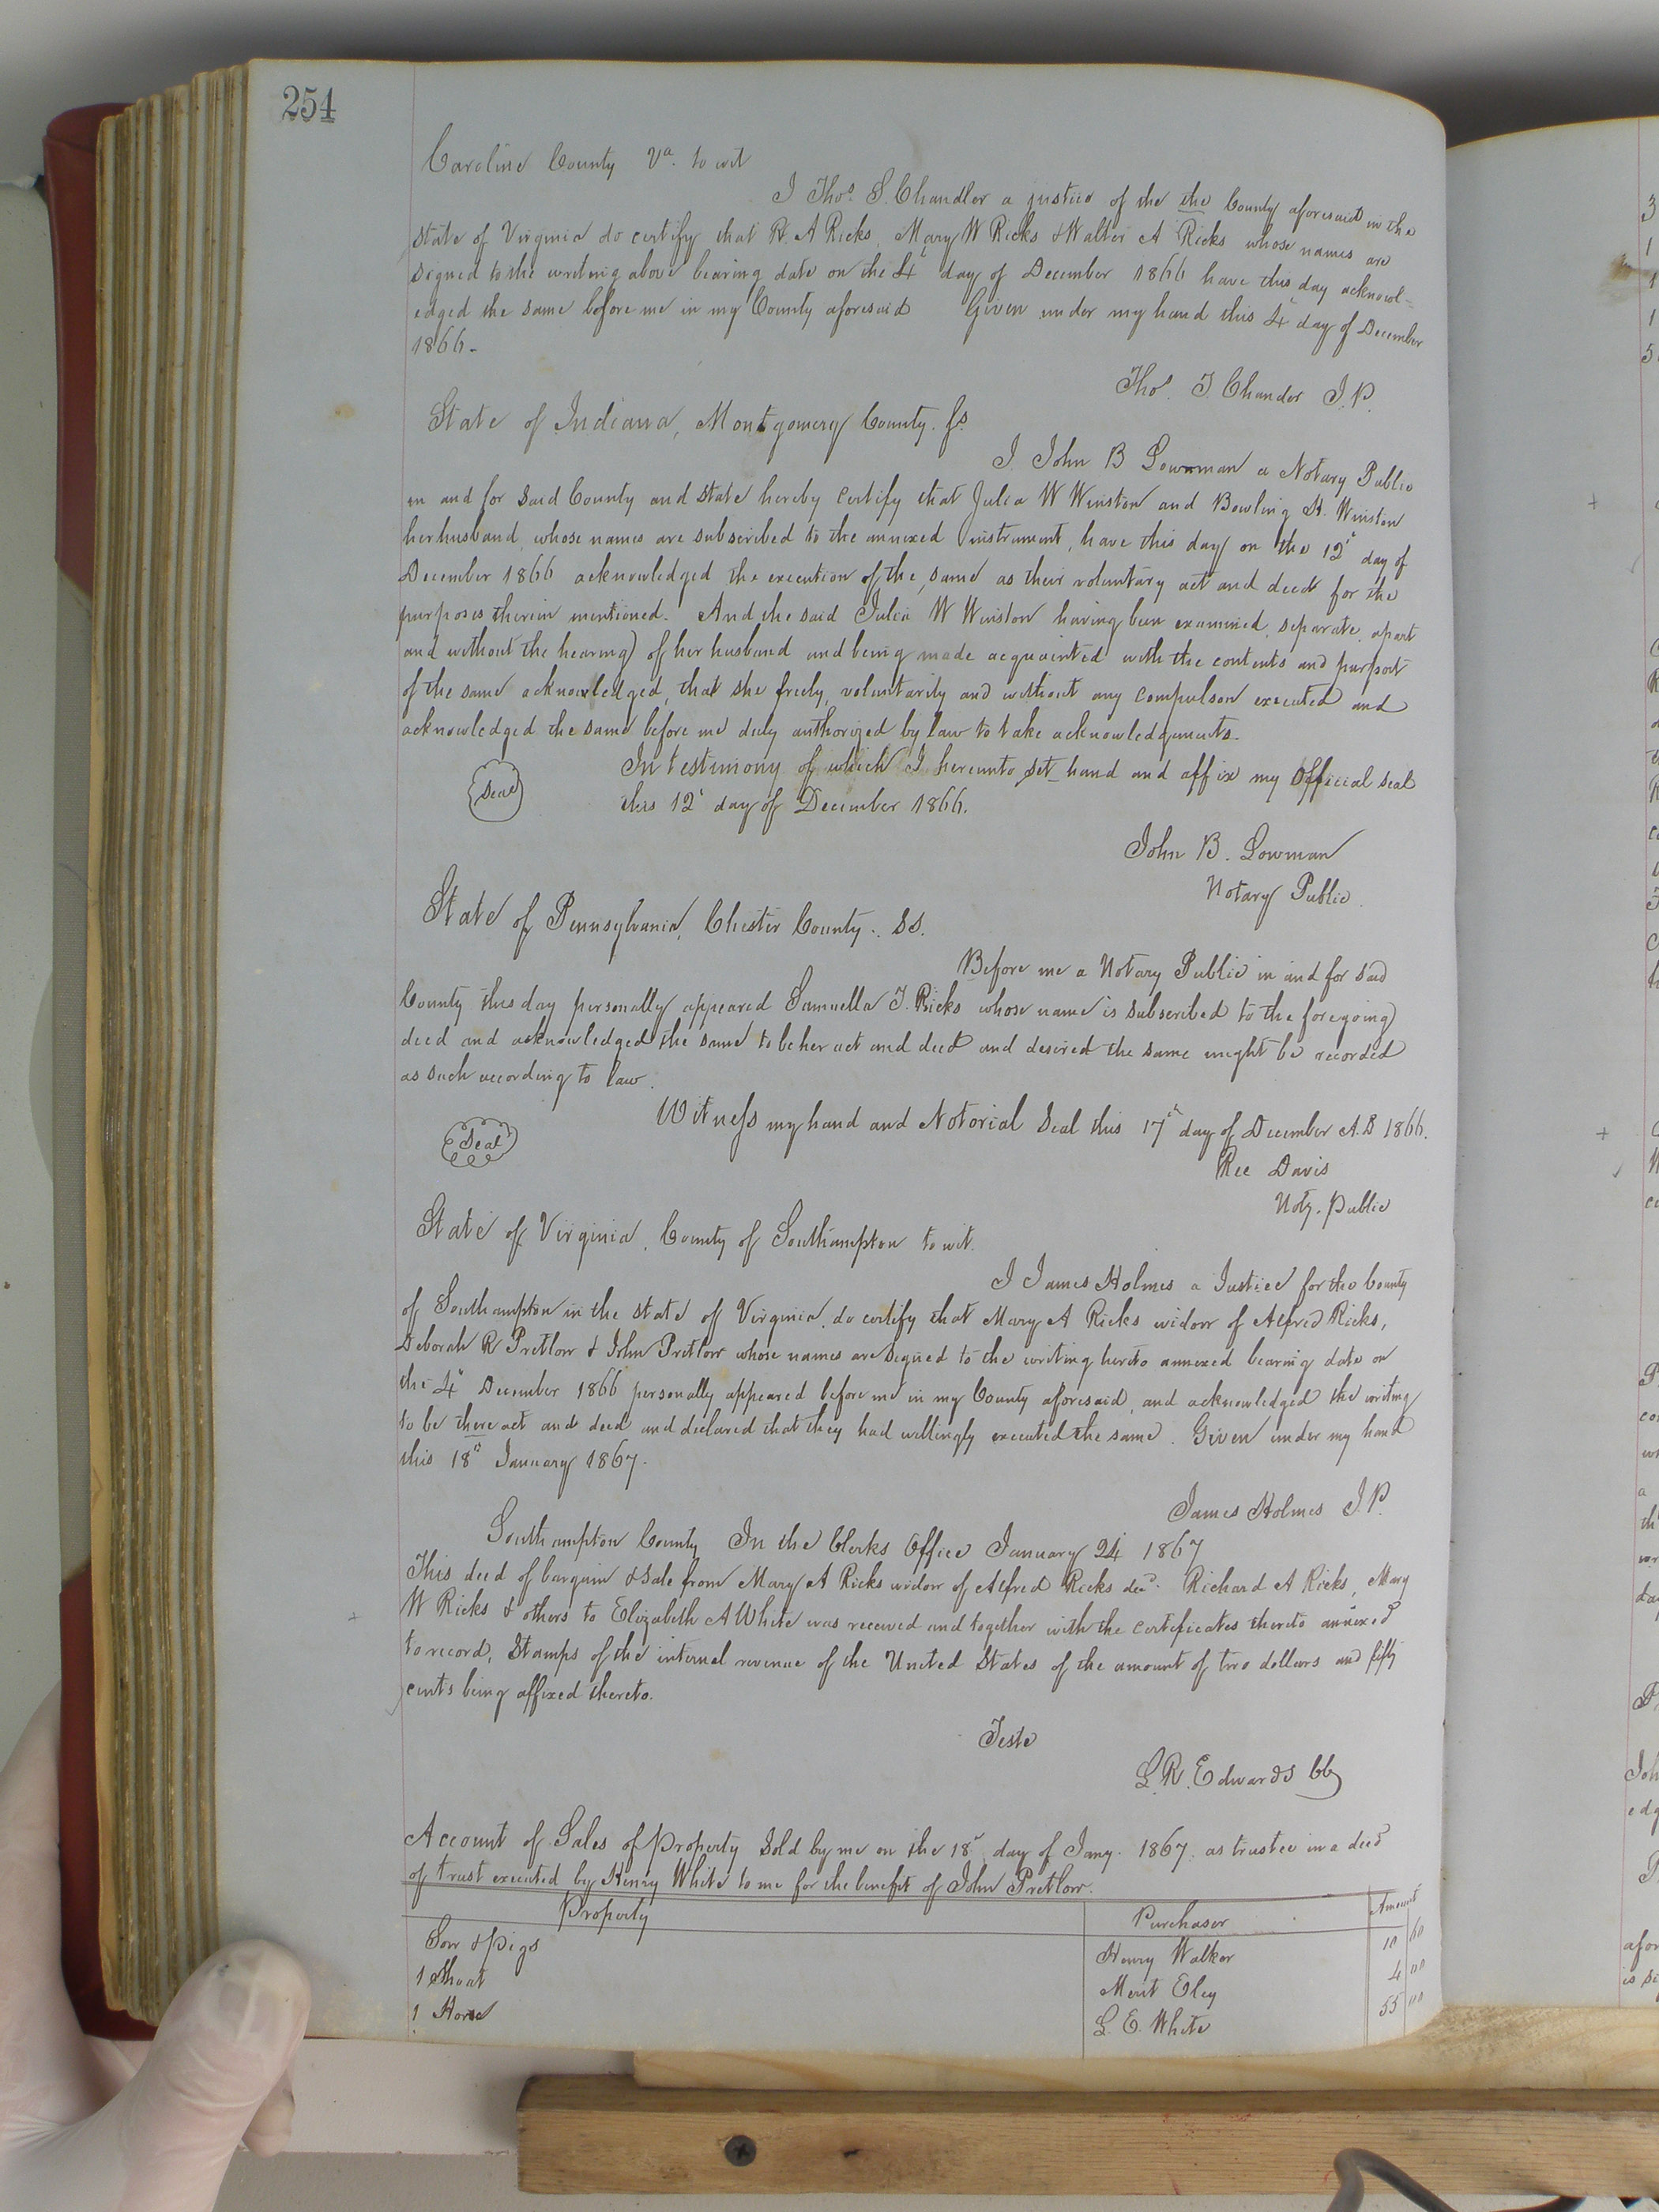 254
Caroline County Va. to wit
I Thos. S. Chandler a justice of the the County aforesaid in the
state of Virginia do certify that R. A Ricks, Mary W Ricks & Walter A Ricks whose names are
signed to the writing above bearing date on the 4" day of December 1866 have this day acknowl-
edged the same before me in my County aforesaid Given under my hand this 4" day of December
1866-
Thos. T. Chander J.P.
State of Indiana, Montgomery County. Ss.
I John B Lowman a Notary Public
in and for said County and state hereby certify that Julia W Winston and Bowling H. Winston
her husband, whose names are subscribed to the annexed instrument, have this day on the 12" day of
December 1866 acknowledged the execution of the same as their voluntary act and deed for the
purposes therein mentioned. And the said Julia W Winston having been examined, separate, apart
and without the hearing of her husband and being made acquainted with the contents and purport
of the same acknowledged, that she freely, voluntarily and without any compulson executed and
acknowledged the same before me duly authorized by law to take acknowledgments-
In testimony of which I hereunto set hand and affix my Official seal
Seal
this 12" day of December 1866.
John B. Lowman
Notary Public.
State of Pennsylvania, Chester County. SS.
Before me a Notary Public in and for said
County this day personally appeared Samuella T. Ricks whose name is subscribed to the foregoing
deed and acknowledged the same to be her act and deed and desired the same might be recorded
as such according to law.
Witness my hand and Notorial Seal this 17" day of December A.D 1866.
Seal
Ree Davis
Noty. Public
State of Virginia, County of Southampton to wit.
I James Holmes a Justice for the County
of Southampton in the state of Virginia, do certify that Mary A Ricks widow of Alfred Ricks,
Deborah R Pretlow & John Pretlow whose names are signed to the writing hereto annexed bearing date on
the 4" December 1866 personally appeared before me in my County aforesaid, and acknowledged the writing
to be there act and deed and declared that they had willingly executed the same. Given under my hand
this 18" January 1867.
James Holmes J.P.
Southampton County In the Clerks Office January 24 1867
This deed of bargain & sale from Mary A Ricks widow of Alfred Ricks decd. Richard A Ricks, Mary
W Ricks & others to Elizabeth A White was received and together with the certificates thereto annexed
to record, Stamps of the internal revenue of the United States of the amount of two dollars and fifty
cents being affixed thereto.
Teste
L. R. Edwards CC
Account of Sales of Property sold by me on the 18" day of Jany. 1867. as trustee in a deed
of trust executed by Henry White to me for the benefit of John Pretlow.
Property Purchaser Amount
Sow & Pigs Henry Walker 10 60
1 Shoat Merit Eley 4 00
1 Horse L. E. White 55 00